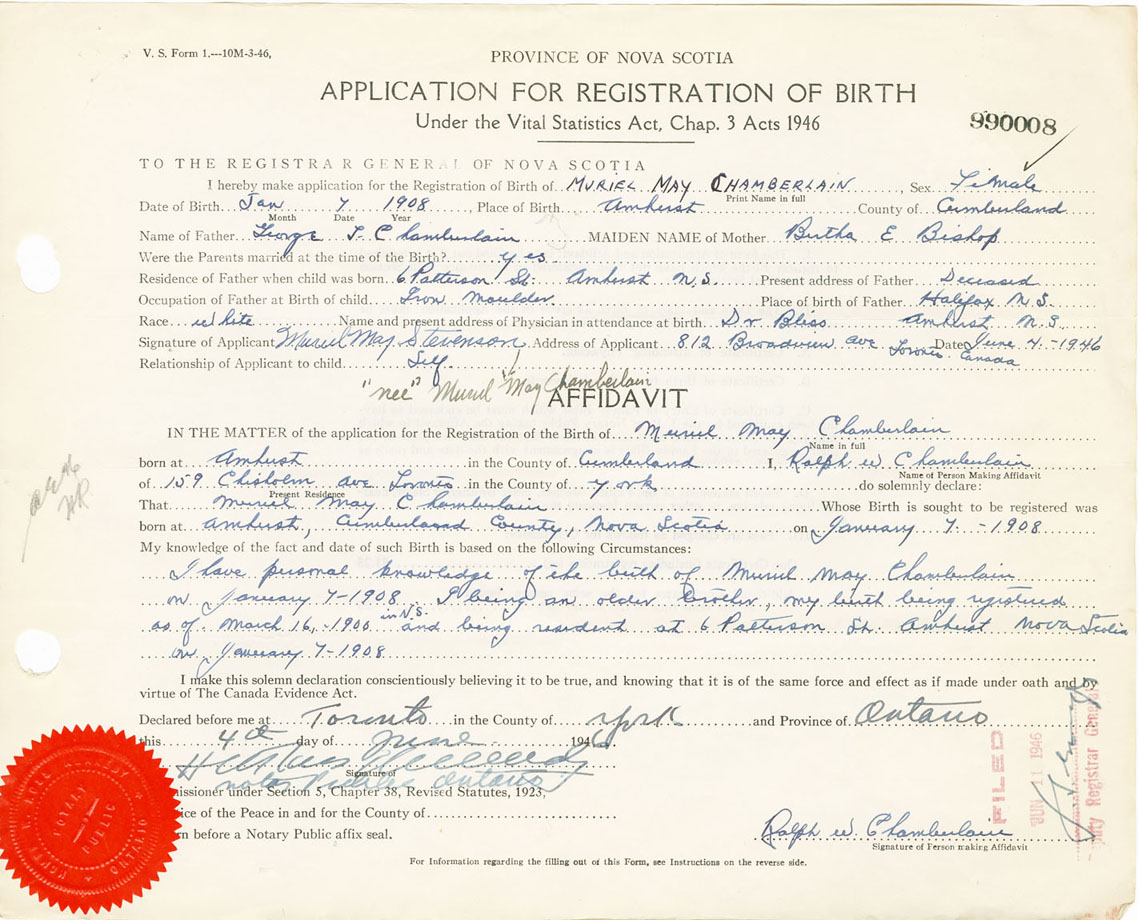 V. S. Form 1.---10M-3-46,
PROVINCE OF NOVA SCOTIA
APPLICATION FOR REGISTRATION OF BIRTH
Under the Vital Statistics Act, Chap. 3 Acts 1946
990008
TO THE REGISTRAR GENERAL OF NOVA SCOTIA
I hereby make application for the Registration of Birth of MURIEL MAY CHAMBERLAIN, Sex Female
Print Name in full
Date of Birth Jan 7 1908, Place of Birth Amherst County of Cumberland
Month Date Year
Name of Father George T. Chamberlain MAIDEN NAME of Mother Bertha E Bishop
Were the Parents married at the time of the Birth? yes
Residence of Father when child was born 6 Patterson St. Amherst N.S. Present address of Father Deceased
Occupation of Father at Birth of child Iron Moulder Place of birth of Father Halifax N.S.
Race White Name and present address of Physician in attendance at birth Dr Bliss Amherst N.S
Signature of Applicant Muriel May Stevenson Address of Applicant 812 Broadview Ave Toronto Canada Date June 4-1946
Relationship of Applicant to child Self
"nee" Muriel May Chamberlain
AFFIDAVIT
IN THE MATTER of the application for the Registration of the Birth of Muriel May Chamberlain
Name in full
born at Amherst in the County of Cumberland I, Ralph W Chamberlain
Name of Person Making Affidavit
of 159 Chisholm Ave Toronto in the County of York do solemnly declare:
Present Residence
That Muriel May Chamberlain Whose Birth is sought to be registered was
born at Amherst, Cumberland County, Nova Scotia on January 7-1908
My knowledge of the fact and date of such Birth is based on the following Circumstances:
I have personal knowledge of the birth of Muriel May Chamberlain
on January 7-1908. I being an older brother, my birth being registered
as of March 16,-1900 in N.S. and being resident at 6 Patterson St. Amherst Nova Scotia
on January 7-1908
I make this solemn declaration conscientiously believing it to be true, and knowing that it is of the same force and effect as if made under oath and by
virtue of The Canada Evidence Act.
Declared before me at Toronto in the County of York and Province of Ontario
this 4th day of June 1946.
Signature of
Notary Public Ontario
missioner under Section 5, Chapter 38, Revised Statutes, 1923,
ice of the Peace in and for the County of
n before a Notary Public affix seal.
FILED
JUN 11 1946
uty Registrar General
Ralph W. Chamberlain
Signature of Person making Affidavit
For Information regarding the filling out of this Form, see Instructions on the reverse side.
NOTARY PUBLIC
ONTARIO